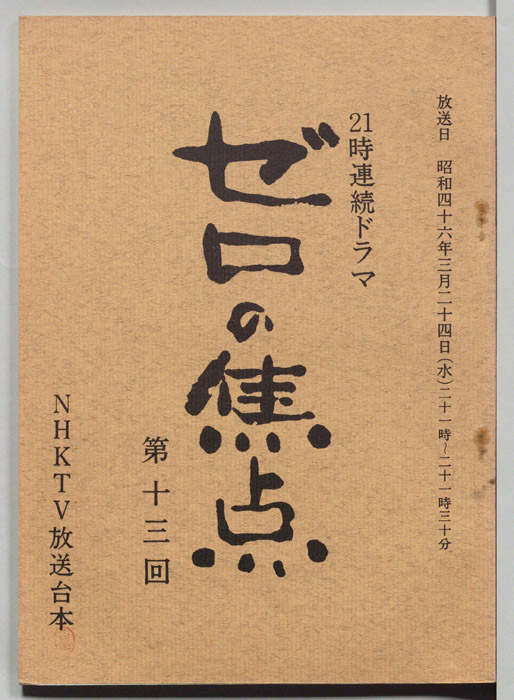 放送日 昭和四十六年三月二十四日(水)二十一時~二十一時三十分
21時連続ドラマ
ゼロの焦点
第十三回
NHKTV放送台本